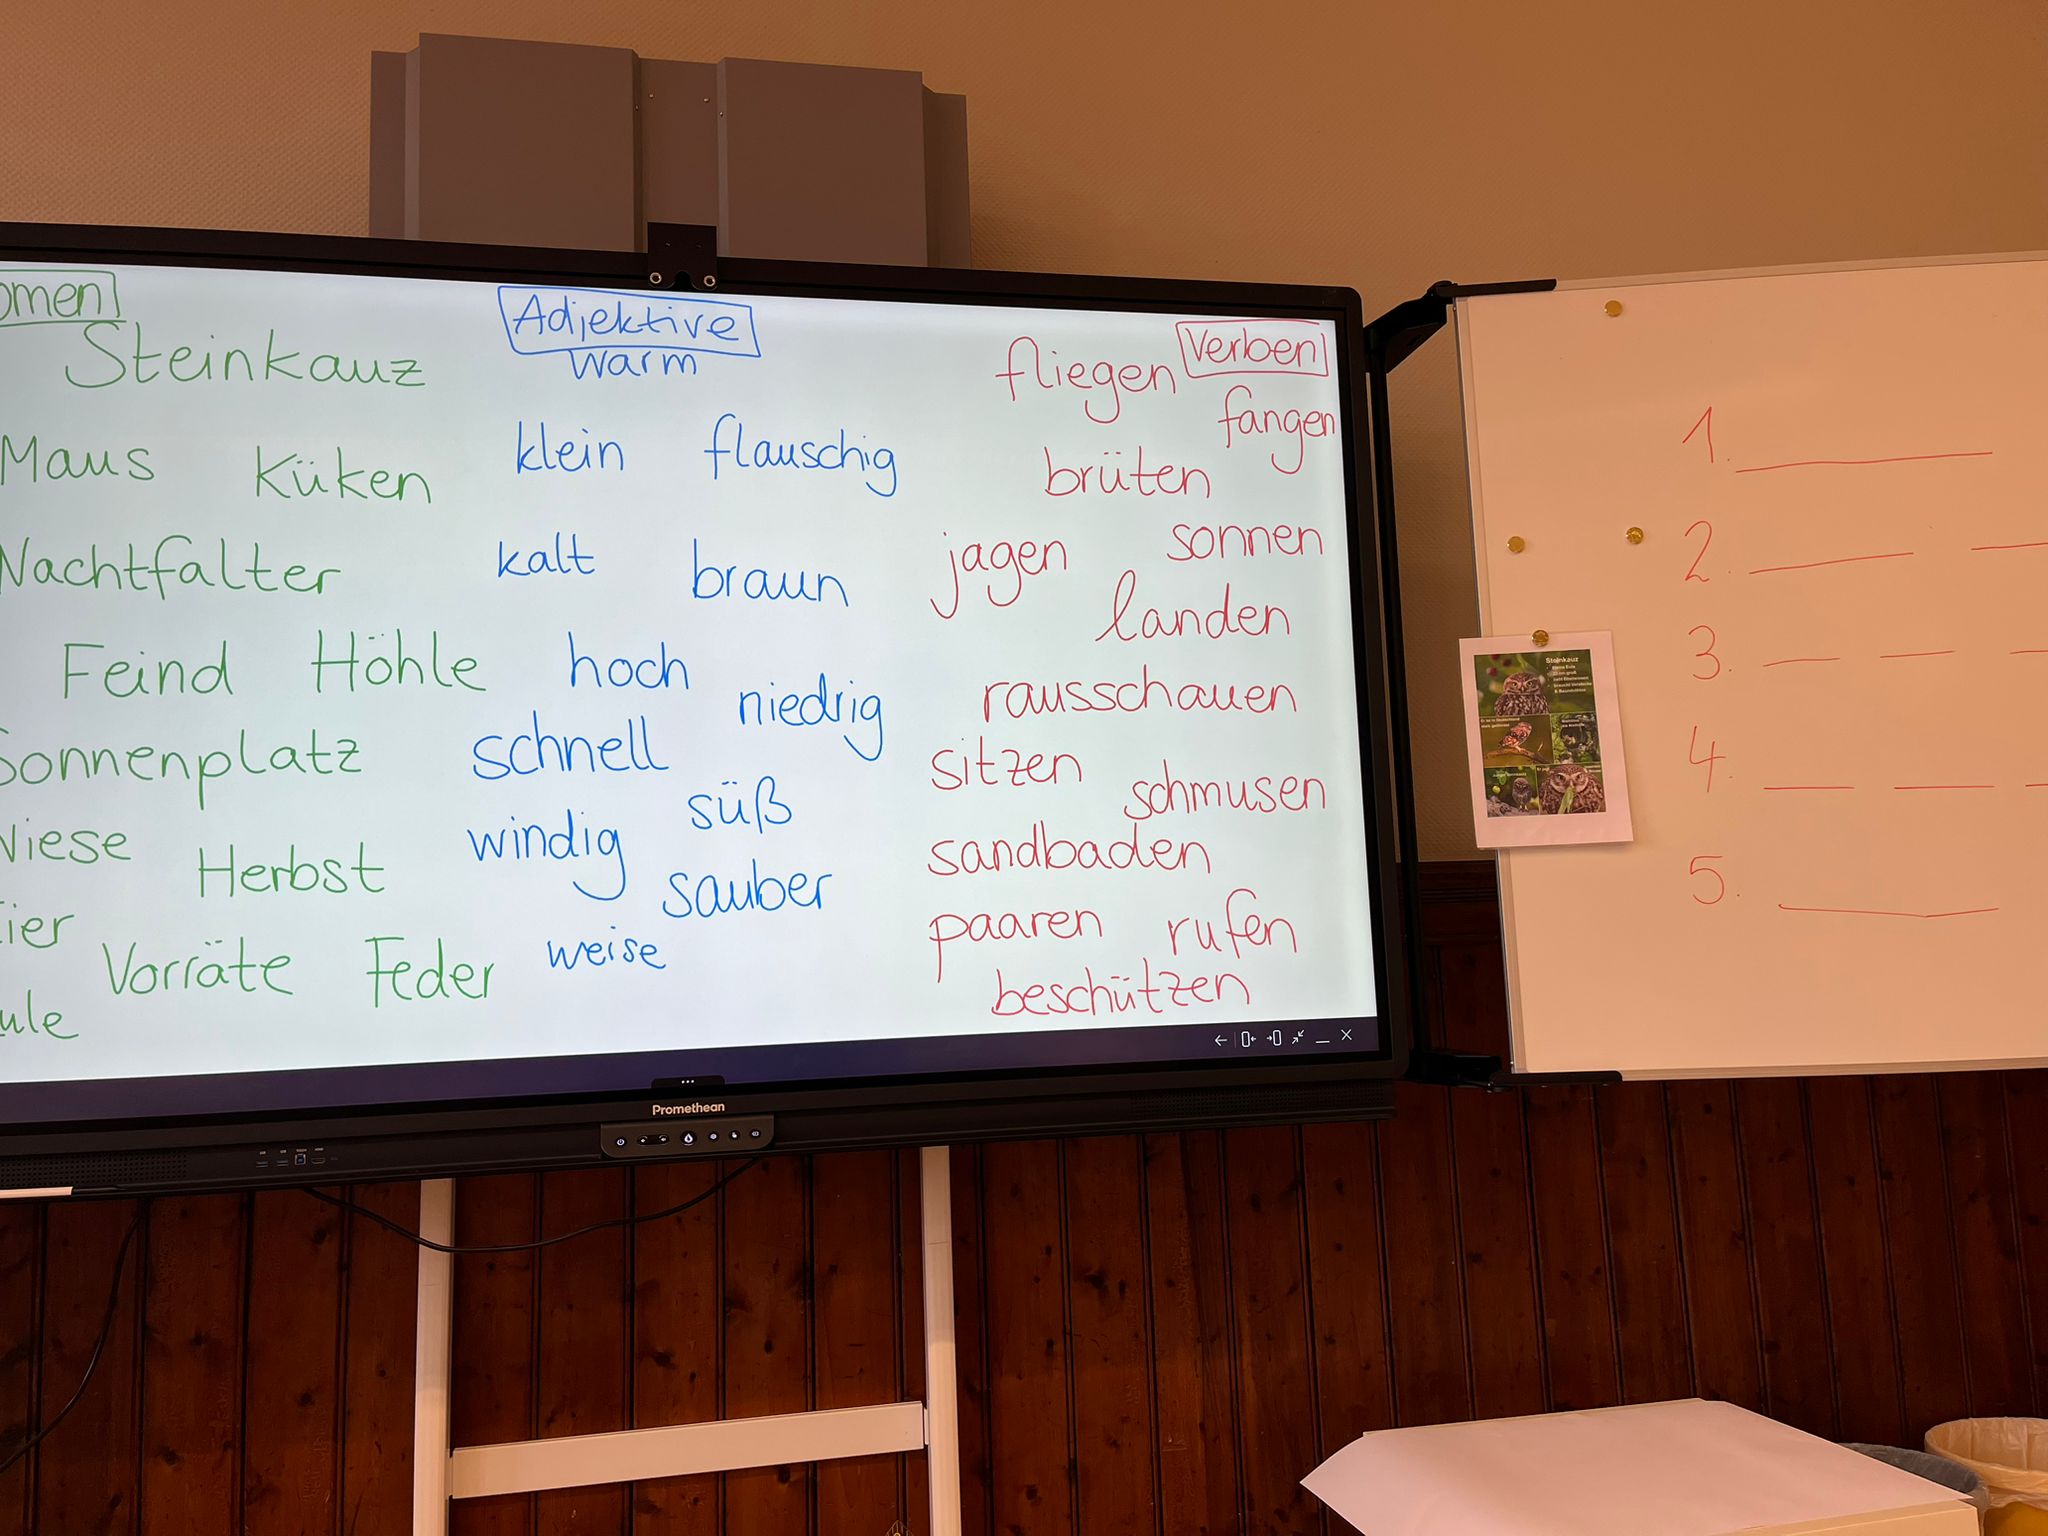 omen
Adjektive
Verben
Steinkauz
warm
fliegen
fangen
Maus Küken
klein flauschig
brüten
Nachtfalter
kalt braun
jagen sonnen
landen
Feind Höhle
hoch niedrig
rausschauen
Sonnenplatz
schnell
sitzen schmusen
süß
Wiese Herbst
windig sauber
sandbaden
ier
Vorräte Feder
weise
paaren rufen
ule
beschützen
Promethean
1.
2.
3.
4.
5.
Steinkauz